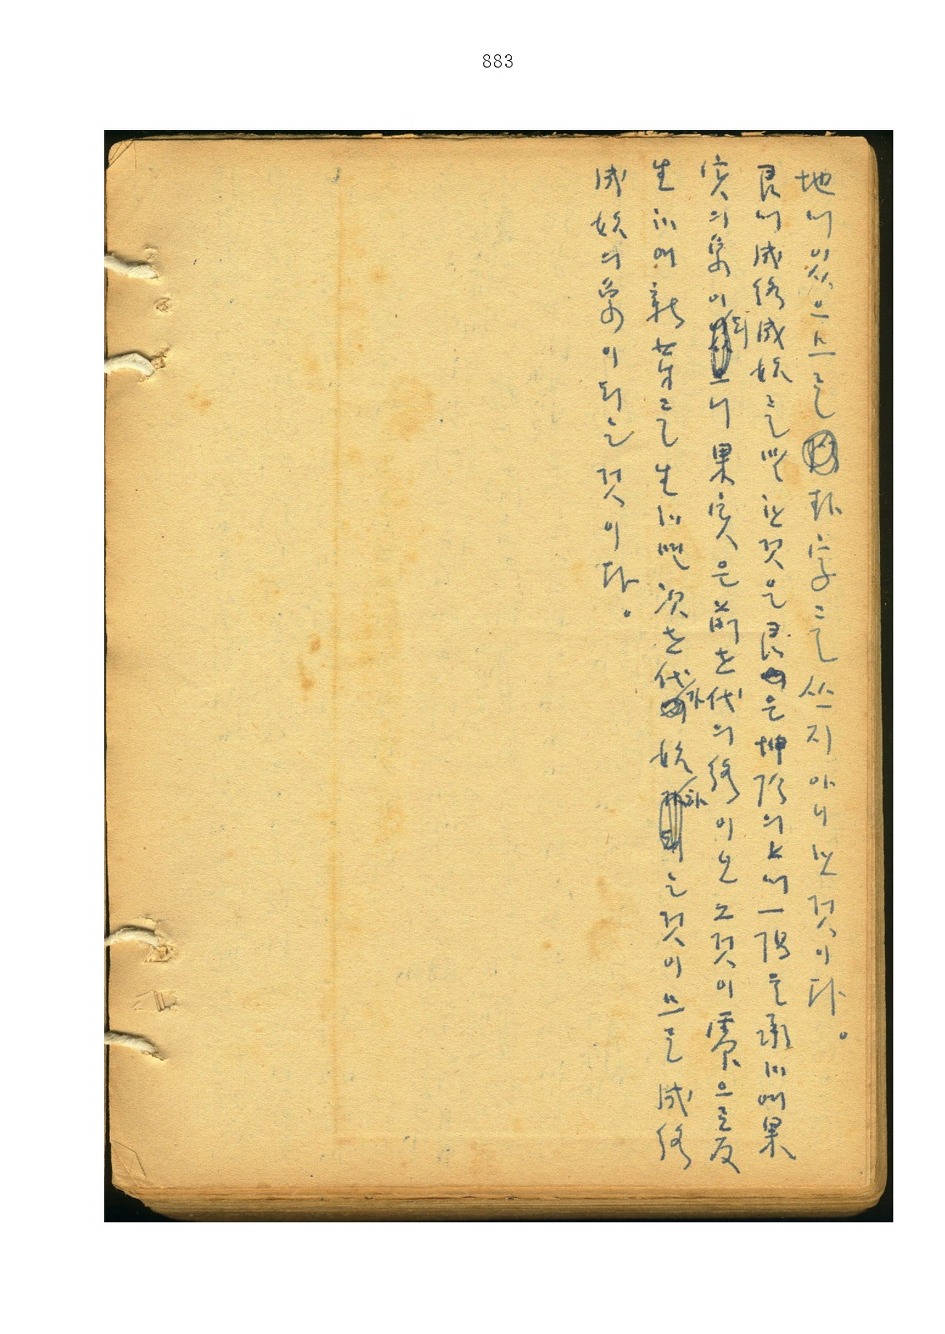 883
地에 있으므로 卦字를 쓰지 아니한 것이다。
艮에 成終成始를 말한 것은 艮은 坤陰의 上에 一陽을 承하야 果
實의 象이 되니 果實은 前世代의 終이오 그것이 震으로 反
生하야 新芽를 生하면 次世代가 始하는 것이므로 成終
成始의 象이 되는 것이다。